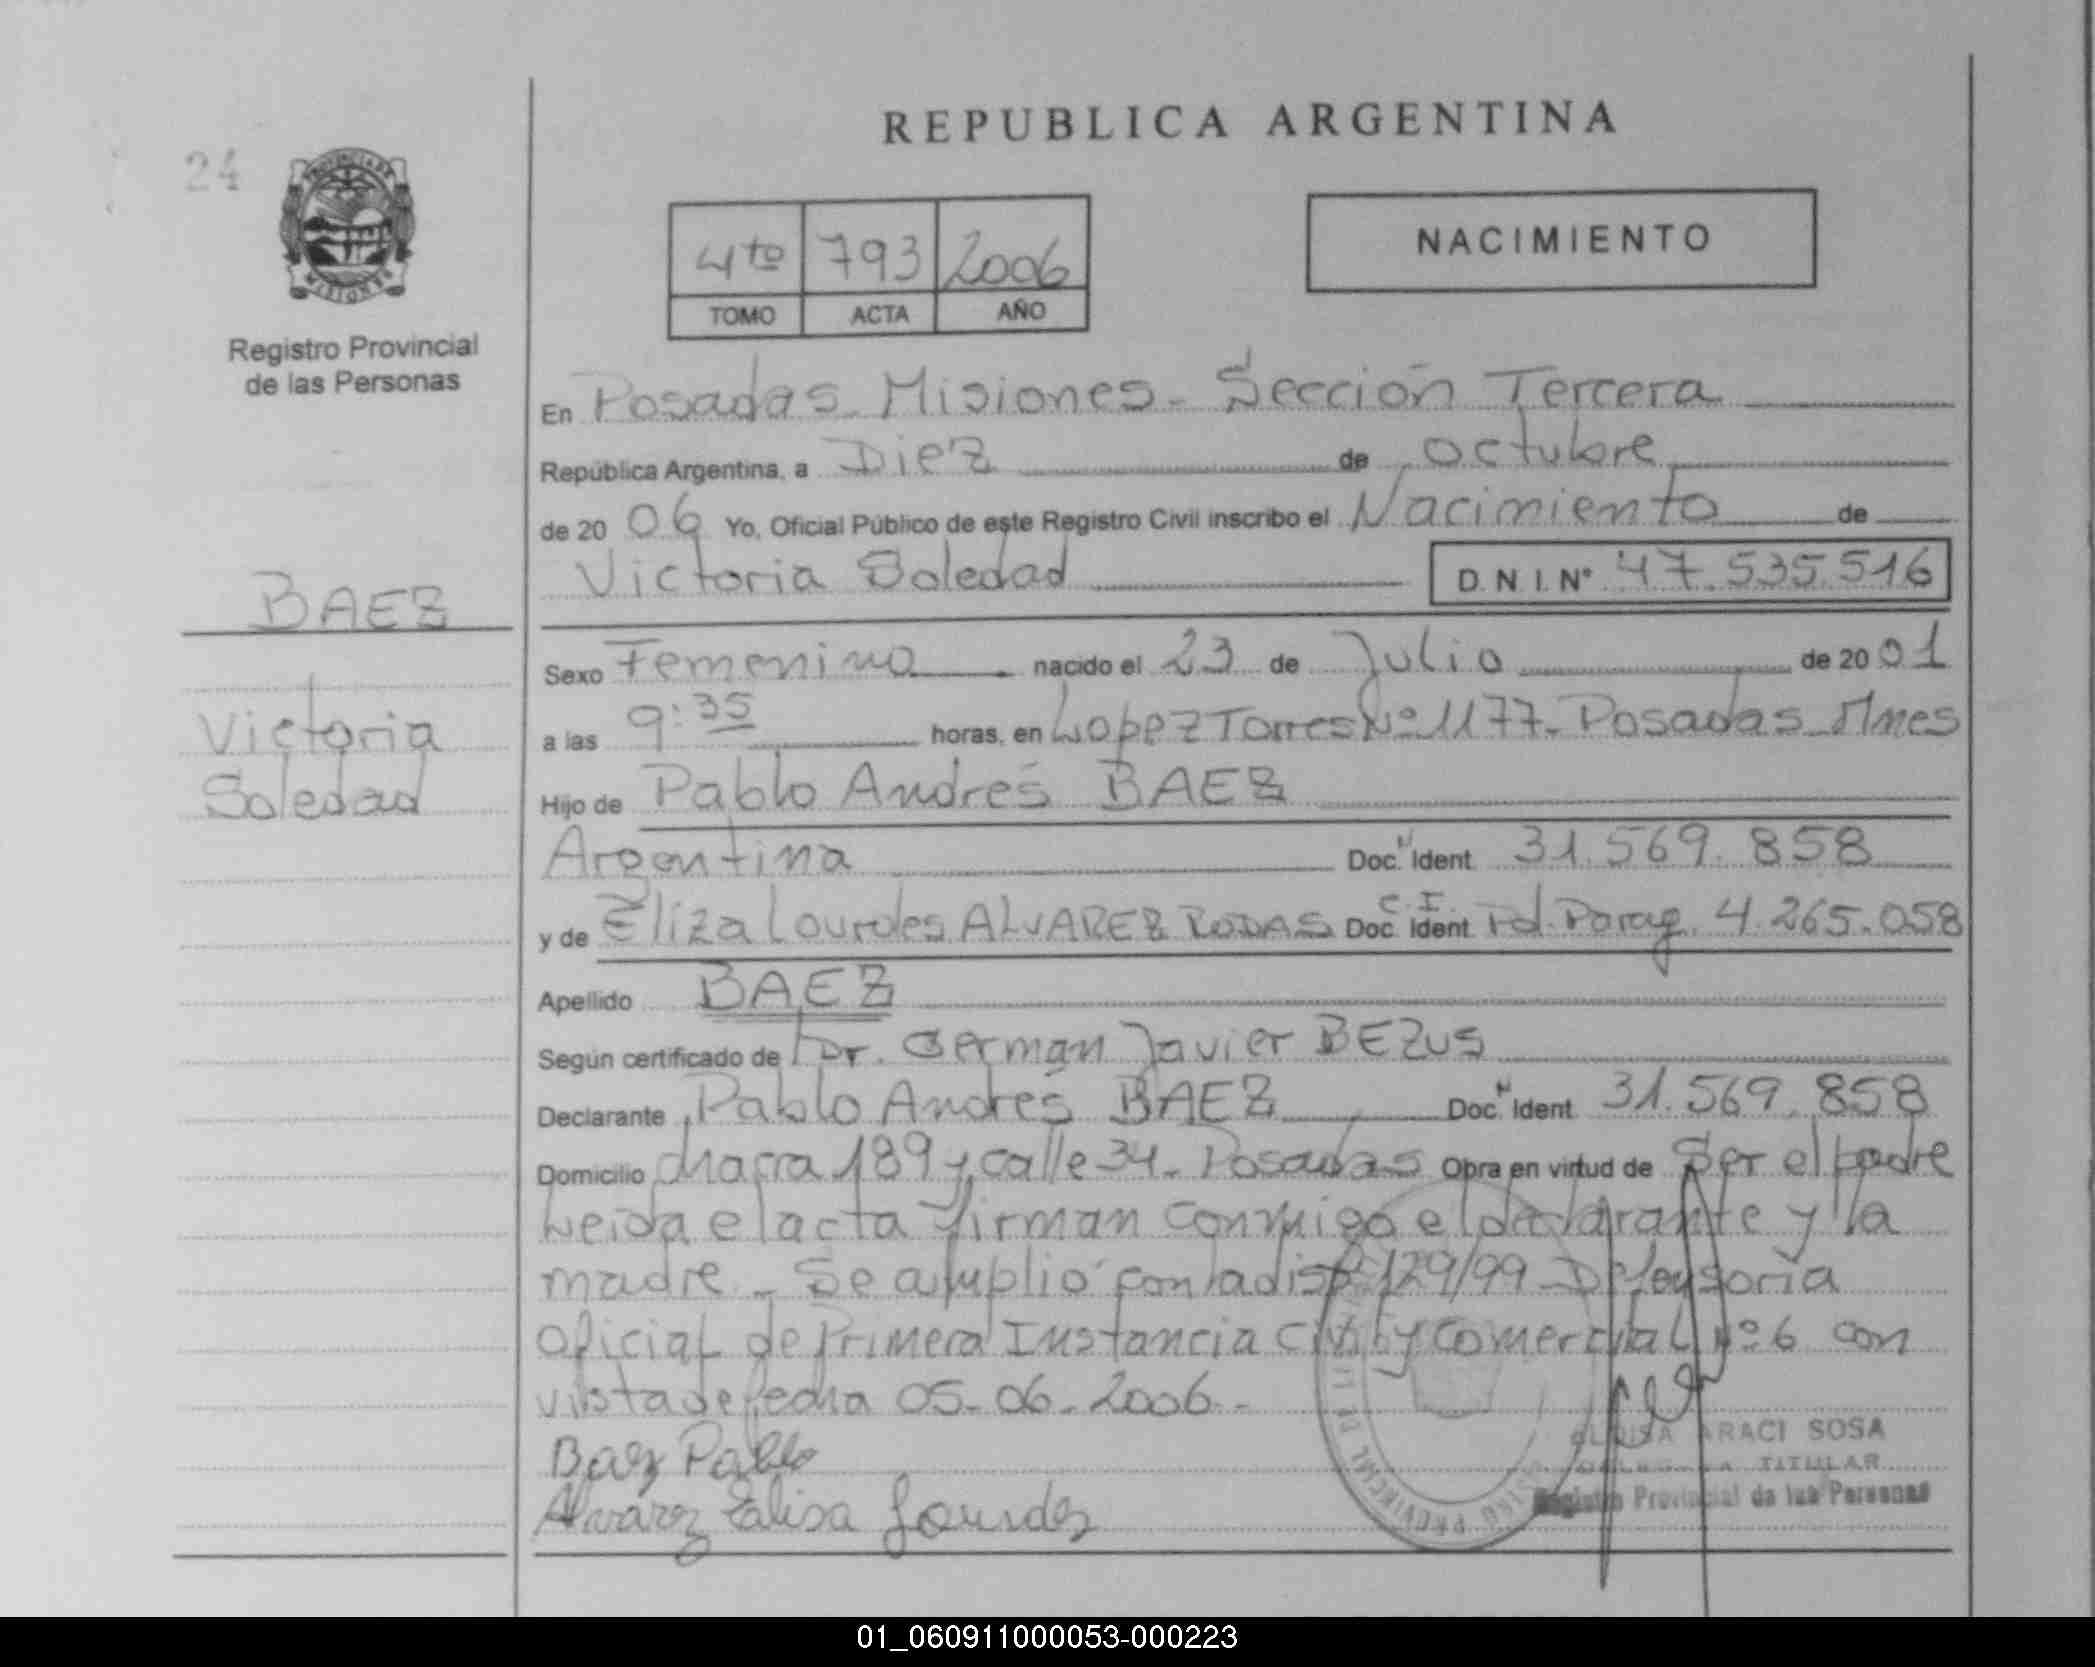 REPUBLICA ARGENTINA
24
PROVINCIA DE
MISIONES
Registro Provincial
de las Personas
4to 793 2006
TOMO ACTA AÑO
NACIMIENTO
En Posadas Misiones - Sección Tercera
República Argentina, a Diez de octubre
de 20 06 Yo, Oficial Público de este Registro Civil inscribo el Nacimiento de
Victoria Soledad D.N.I.Nº 47.535.516
BAEZ
Victoria
Soledad
Sexo Femenino nacido el 23 de Julio de 20 01
a las 9:35 horas, en Lopez Torres Nº 1177- Posadas Mnes
Hijo de Pablo Andrés BAEZ
Argentina Doc. Ident. 31.569.858
y de Eliza Lourdes ALVAREZ RODAS C.I. Doc. Ident. Pol. Parag. 4.265.058
Apellido BAEZ
Según certificado de Dr. German Javier BEZUS
Declarante Pablo Andrés BAEZ Doc. Ident 31.569.858
Domicilio chacra 189 y calle 34 - Posadas Obra en virtud de Ser el padre
Leida el acta firman conmigo el declarante y la
madre - Se amplió con la disp. 129/99 Defensoria
Oficial de Primera Instancia Civil y Comercial Nº 6 con
vista de fecha 05-06-2006.-
Baez Pablo
Alvarez Elisa Lourdes
ARACI SOSA
TITULAR
Registro Provincial de las Personas
01_060911000053-000223